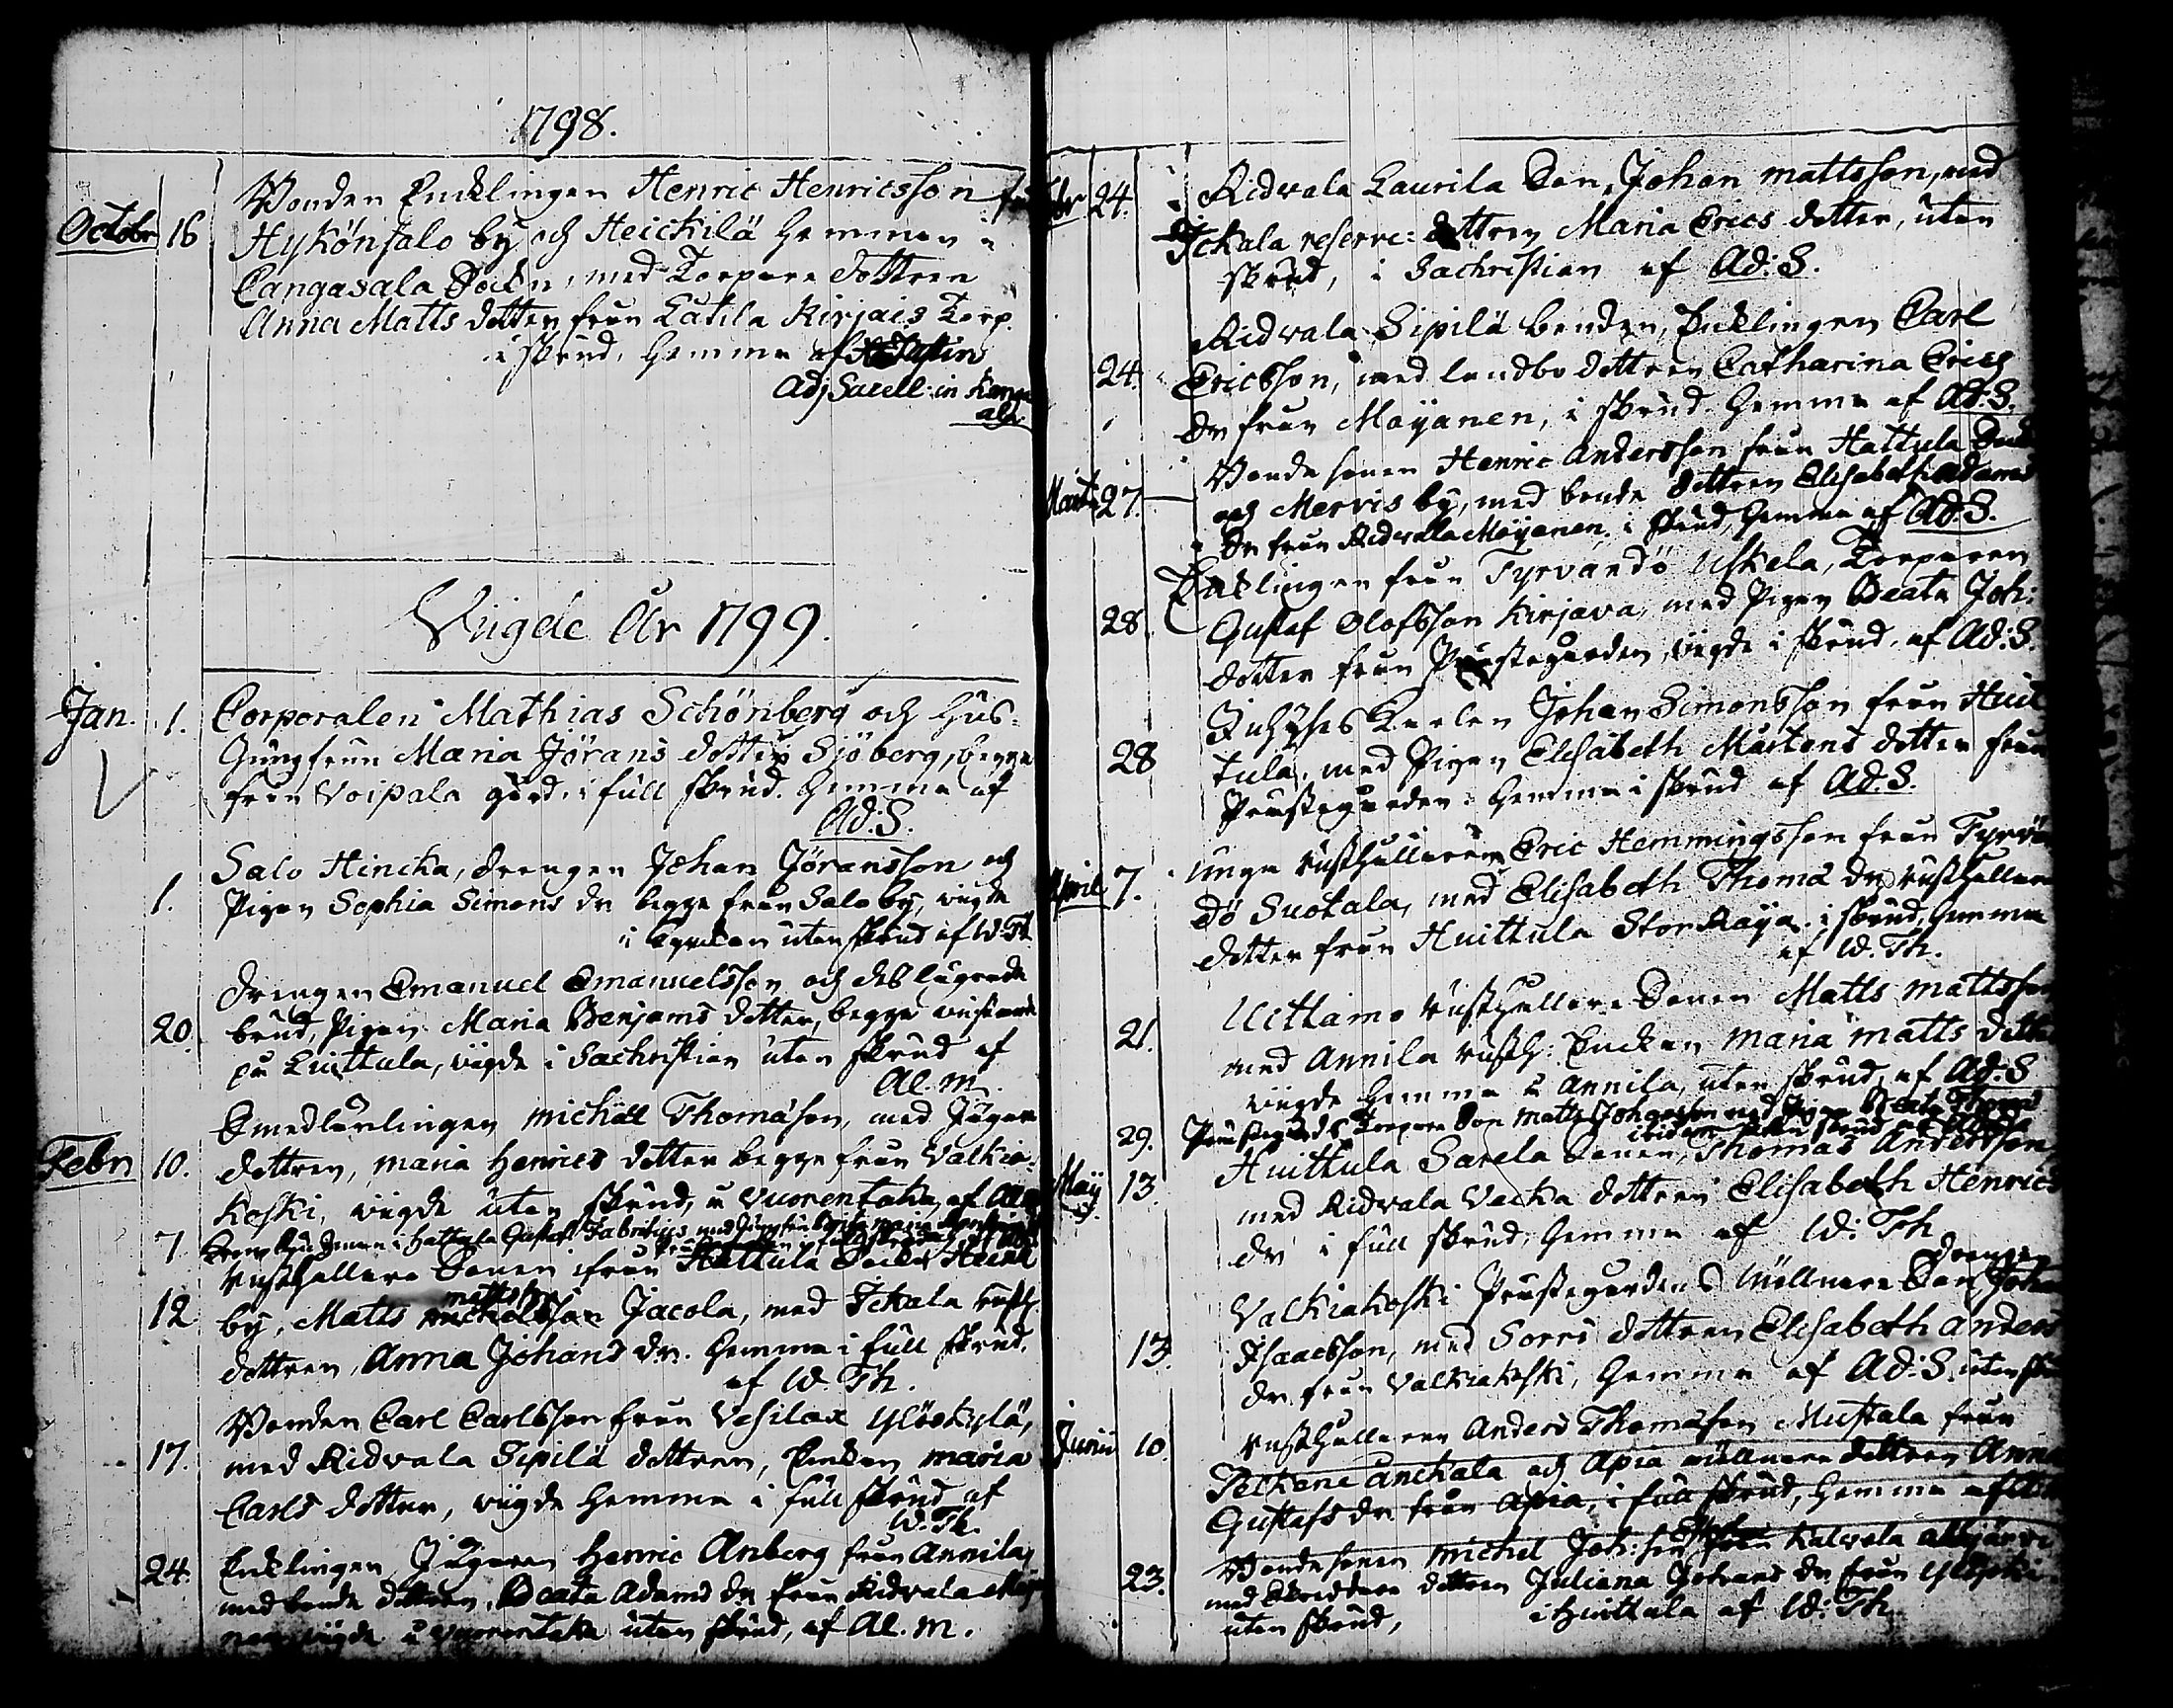 1798.
Octobr 16 Bonden Encklingen Henric Henricsson från
Hykönsalo by och Heickilä hemman i
Cangasala Sockn, med Torpare dottren
Anna Matts dotter från Lahila Kirjais Torp.
i skrud, hemma af
Adj Sacell. in Kang
ala.
Vigde År 1799.
Jan. 1. Corporalen Mathias Schönberg och Hus-
Jungfrun Maria Jörans dotter Sjöberg, begge
från Voipala gård, i full skrud. hemma af
Ad: S.
1. Salo Hincka, drengen Johan Jöransson och
Pigan Sophia Simons dr begge från Salo by, vigde
i kyrckan utan skrud af W. Th
20. drengen Emanuel Emanuelsson och des lägrade
brud, Pigan Maria Benjams dotter, begge
på Luittula, vigde i Sachristian utan skrud af
Al. M.
Febr 10. Smedlärlingen Michäel Thomäson, med Jägare
dottren, Maria Henrics dotter begge från Valkia-
koski, vigde utan skrud, i Vuorentaka, af Al. M.
7 i Hattula Gustaf Fabritius, med Jungfru Brita Maria
12 Rusthållare Sonen från Hattula Sockn
by, Matts Mattsson Jacola, med Ickala rusth.
dottren, Anna Johans dr. hemma i full skrud.
af W. Th.
17. Bonden Carl Carlsson från Vesilax Ylöskylä,
med Ridvala Sipilä dottren, Enckan Maria
Carls dotter, vigde hemma i full skrud af
W. Th.
24. Encklingen Jägaren Henric Anberg från Annila,
med bonde dottren, Beata Adams dr från Ridvala Mäyä
nen vigde i Vuorentaka utan skrud, af Al. M.
Febr 24. Ridvala Laurila Son, Johan Mattsson, med
Ickala reserve: dottren Maria Erics dotter, utan
skrud, i Sachristian af Ad: S.
24. Ridvala Sipilä bonden, Encklingen Carl
Ericsson, med landbo dottren Catharina Erics
dr från Mäyänen, i skrud hemma af Ad: S.
Marti 27. Bonde sonen Henric Andersson från Hattula Sock
och Mervis by, med bonde dottren Elisabeth Adams
dr från Ridvala Mäyänen i skrud, hemma af Ad: S.
28 Encklingen från Tyrvändö Uskela, Torparen
Gustaf Olofsson Kirjava, med Pigan Beata Joh:
dotter från Prustegården, vigde i skrud, af Ad: S.
28 Inhyses Karlen Johan Simonsson från Huit
tula, med Pigan Elisabeth Mårtens dotter från
Prustegården hemma i skrud af Ad: S.
April 7. unga rusthållaren Eric Hemmingsson från Tyrvän
dö Suotala, med Elisabeth Thomä dr rusthållare
dotter från Huittula Stor Raya i skrud, hemma
af W. Th.
21. Uittamo rusthållare Sonen Matts Mattsson
med Annila rusth: Enckan Maria Matts dotter
vigde hemma i Annila, utan skrud, af Ad: S
29. Prustegårds Torpare Son Matts Johansson med Pigan Beata Thomä
Maij 13 Huittula Sarela Sonen, Thomas Andersson,
med Ridvala Vecka dottren Elisabeth Henrics
dr i full skrud, hemma af W: Th
13. Valkiakoski Prustegårdens Möllnare Son, drengen Johan
Isaacsson, med Sorri dottren Elisabeth Anders
dr från Valkiakoski, hemma af Ad: S. utan skrud
Junii 10. rusthållaren Anders Thomäson Mustala från
Pelkene Anckala och Apia möllnare dottren Anna
Gustafs dr från Apia, i full skrud, hemma af
23. Bonde sonen Michel Joh: son från Kalvola
med Skräddare dottren Juliana Johans dr från
utan skrud, i Huittula af W: Th